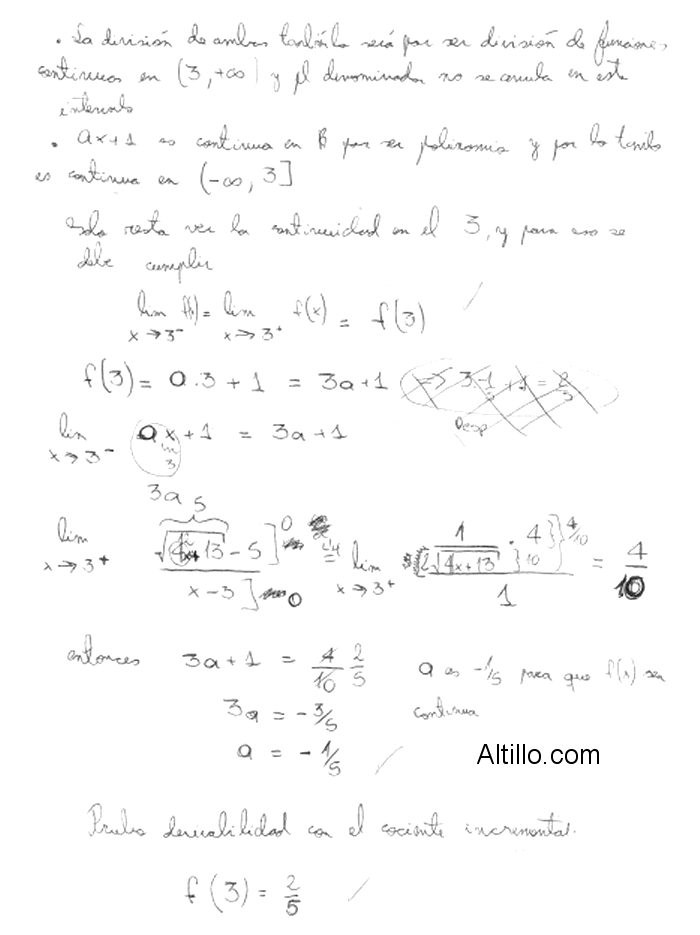 • La división de ambas también lo será por ser división de funciones
continuas en (3, +∞) y el denominador no se anula en este
intervalo
• ax+1 es continua en R por ser polinomio y por lo tanto
es continua en (-∞, 3]
Solo resta ver la continuidad en el 3, y para eso se
debe cumplir
lim x→3⁻ f(x) = lim x→3⁺ f(x) = f(3)
f(3) = a.3 + 1 = 3a+1 => 3.-1/5 + 1 = 2/3
Desp
lim x→3⁻ ax+1 = 3a+1
3a 5
lim x→3⁺ (√(4x+13) - 5)/(x-3) 0 0 L'H = lim x→3⁺ (1/(2√(4x+13)) . 4)/1 10 4/10 = 4/10
entonces 3a+1 = 4/10 2/5 a es -1/5 para que f(x) sea
3a = -3/5 continua
a = -1/5
Altillo.com
Pruebo derivabilidad con el cociente incremental.
f(3) = 2/5